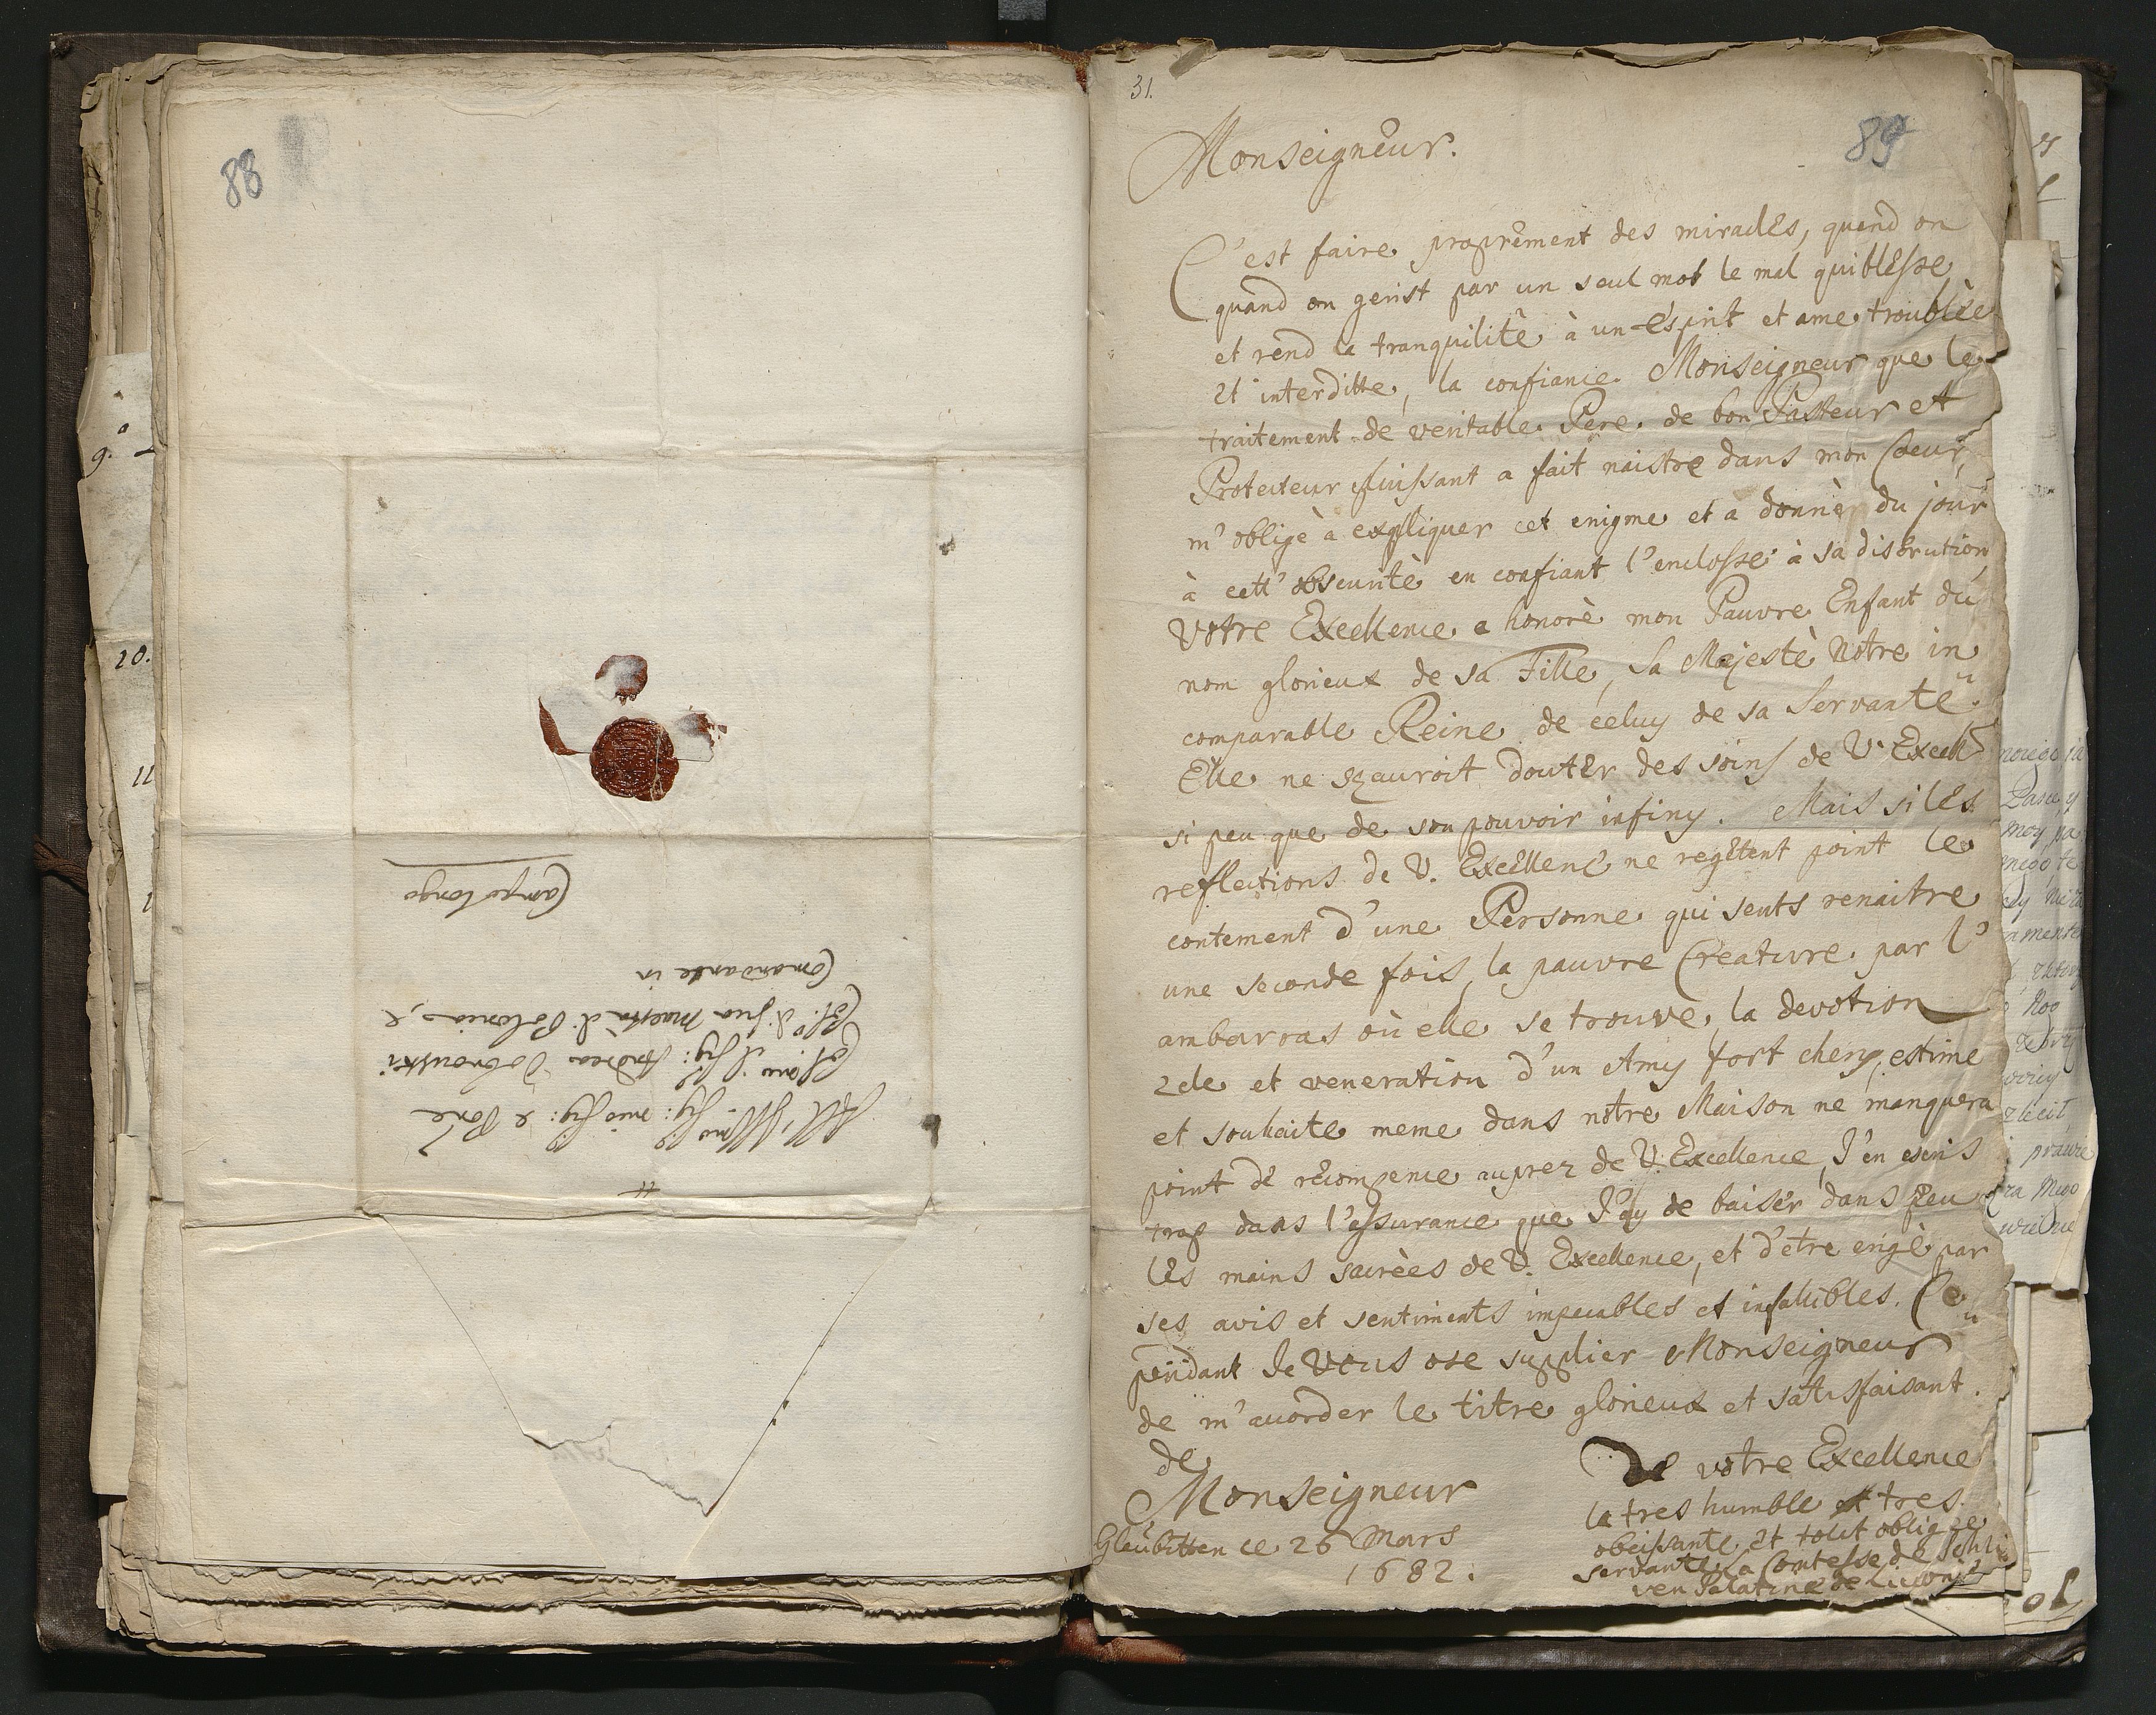 88
All' Illmo Sig: mio Sig: e Pone
Col. Andrea Dobrowski
Col. di sua Maestà di Polonia, e
Comandante in
Campo longo
31.
89
Monseigneur.
C'est faire proprêment des miracles, quend on
quand on gerist par un seul mot le mal qui blesse
et rend la tranquilitè à un Esprit et ame troublèe
et interditte, la confiance Monseigneur que le
traitement de veritable Pere de bon Pasteur et
Protecteur puissant a fait naistre dans mon Coeur,
m'oblige à expliquer cet enigme et à donnèr du jour
à cett' obscuritè en confiant l'enclosse à sa discrution
Votre Excellence a honorè mon Pauvre Enfant du
nom glorieux de sa Fille, Sa Majestè Notre in
comparable Reine de celuy de sa Servante.
Elle ne sçauroit douter des soins de V. Excell
si peu que de son pouvoir infiny. Mais si les
reflections de V. Excellenc ne regetent point le
contement d'une Personne qui sents renaitre
une seconde fois, la pauvre Creature par l'
ambarras où elle se trouve, la devotion
zele et veneration d'un Amy fort chery, estime
et souhaite meme dans nôtre Maison ne manquera
point de recompence auprez de V. Excellence, J'en escris
trop dans l'assurance que J'ay de baiser dans peu
les mains sacrèes de V. Excellence, et d'etre erigè par
ses avis et sentiments impecables et infallibles. Ce
pendant Je vous ose supplier Monseigneur
de m'acorder le titre glorieux et satisfaisant.
de
Monseigneur
De votre Excellence
la tres humble et tres
obeissante et tout obligée
servante la Comtesse de Schli
ven Palatine de Livonie
Gleubitten ce 26 Mars
1682.